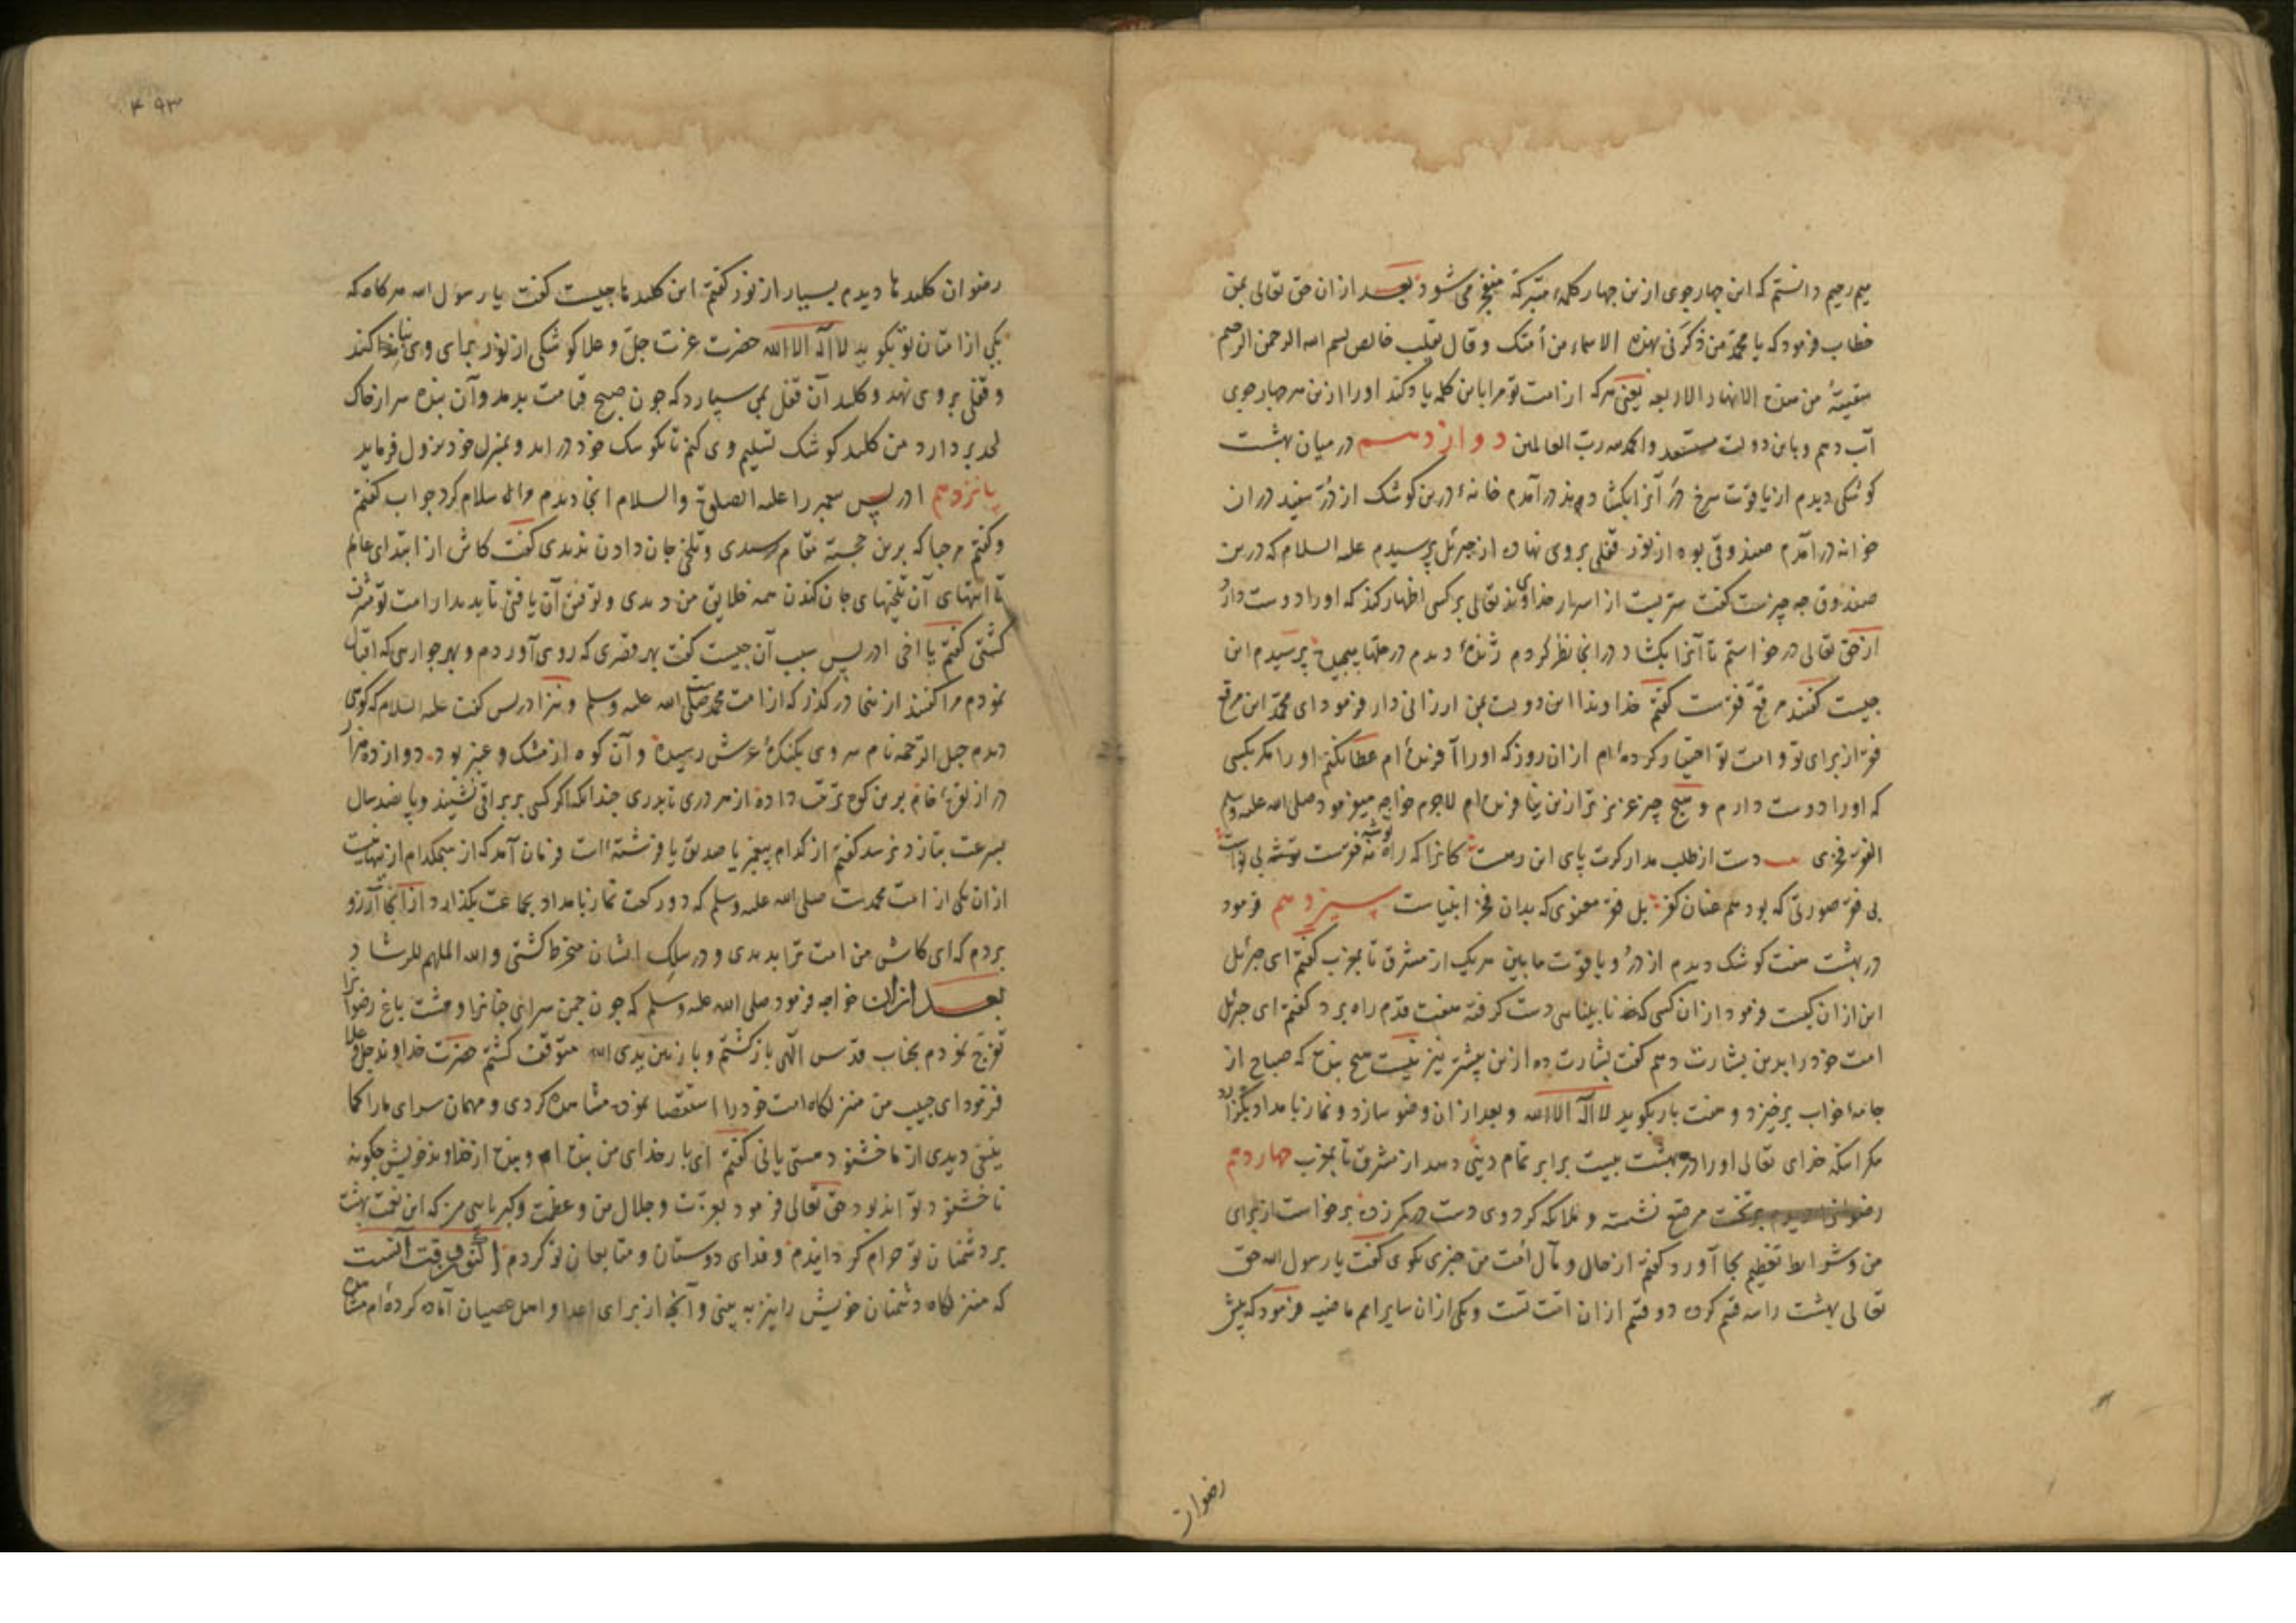 میم رحیم دانستم که این چهار جوی ازین چهار کلمهٔ متبرکه منفجر می شود بعد از ان حق تعالی بمن
خطاب فرمود که یا محمد من ذکرنی بهذه الاسماء من أمتک و قال بقلب خالص بسم الله الرحمن الرحیم
سقیتهٔ من هذه الانهار الاربعه یعنی هرکه از امت تو مرا باین کلمه یاد کند او را ازین هر چهار جوی
آب دهم و باین دولت مستعد والحمدلله رب العالمین دوازدهم در میان بهشت
کوشکی دیدم از یاقوت سرخ در آنرا بکشادم در آمدم خانهٔ درین کوشک از درّ سفید در ان
خوانه در آمدم صندوقی بود از نور قفلی بر وی نهاده از جبرئیل پرسیدم علیه السلام که درین
صندوق چه چیزست گفت سریست از اسرار خداوند تعالی بر کسی اظهار کند که او را دوست دارد
از حق تعالی در خواستم تا آنرا بکشاد در انجا نظر کردم ژندهٔ دیدم پرسیدم این
چیست گفتند مرقع فقرست گفتم خداوندا این دولت بمن ارزانی دار فرمود ای محمد این مرقع
فقر از برای تو و امت تو اختیار کرده ام از ان روز که او را آفریده ام عطا نکنم او را مکر بکسی
که او را دوست دارم و هیچ چیز عزیز تر ازین نیافریده ام لاجرم خواجه میفرمود صلی الله علیه وسلم
الفقر فخری دست از طلب مدار کرت پای این رهست کانرا که راه توشه فقرست توشه بی نواست
بی فقر صورتی که بود هم عنان کفر بل فقر معنوی که بدان فخر انبیاست سیزدهم فرمود
در بهشت هفت کوشک دیدم از درّ و یاقوت مابین هریک از مشرق تا بمغرب گفتم ای جبرئیل
این از ان کیست فرمود از ان کسی که نابینایی دست گرفته هفت قدم راه برد گفتم ای جبرئیل
امت خود را بدین بشارت دهم گفت بشارت ده ازین بیشتر نیز نیست هیچ بنده که صباح از
جامهٔ خواب برخیزد و هفت بار بگوید لا اله الا الله و بعد از ان وضو سازد و نماز بامداد بگزارد
مکر آنکه خدای تعالی او را در بهشت بیست برابر تمام دینی دهد از مشرق تا بمغرب چهاردهم
رضوانرا دیدم بر تخت مرصع نشسته و ملایکه کرد وی دست در کمر زده برخواست از برای
من و شرایط تعظیم بجا آورد گفتم از حال و مآل امت من چیزی بکوی گفت یا رسول الله حق
تعالی بهشت را سه قسم کرده دو قسم از ان امت تست و یکی از ان سایر امم ماضیه فرمود که پیش
رضوان
۴۹۳
رضوان کلیدها دیدم بسیار از نور گفتم این کلیدها چیست گفت یا رسول الله هرکاه که
یکی از امتان تو بکوید لا اله الا الله حضرت عزت جل و علا کوشکی از نور بجای وی بنا کند
و قفلی بر وی نهد و کلید آن قفل بمن سپارد که چون صبح قیامت بدمد و آن بنده سر از خاک
لحد بر دارد من کلید کوشک تسلیم وی کنم تا بکوشک خود در اید و بمنزل خود نزول فرماید
پانزدهم ادریس پیغمبر را علیه الصلوة والسلام انجا دیدم سلام کرد جواب گفتم
و گفتم مرحبا که برین خجسته مقام رسیدی و تلخی جان دادن ندیدی گفت کاش از ابتدای عالم
تا انتهای آن تلخیهای جان کندن همه خلایق من دیدی و توفیق آن یافتی تا بدیدار امت تو مشرف
گشتی گفتم یا اخی ادریس سبب آن چیست گفت بهر قصری که روی آوردم و بهر جواری که اقبال
نمودم مرا گفتند ازینجا در گذر که از امت محمدست صلی الله علیه وسلم و نیز ادریس گفت علیه السلام که کوهی
دیدم جبل الرحمه نام سر وی بکنکرهٔ عرش رسیده و آن کوه از مشک و عنبر بود دوازده هزار
در از نقرهٔ خام برین کوه ترتیب داده از هر دری تا بدری چندانکه اگر کسی بر براق نشیند و پانصد سال
بسرعت بتازد نرسد گفتم از کدام پیغمبر یا صدیق یا فرشته است فرمان آمد که از هیچکدام ازینها نیست
از ان یکی از امت محمدست صلی الله علیه وسلم که دو رکعت نماز بامداد بجماعت بگذارد از آنجا آرزو
بردم که ای کاش من امت ترا بدیدی و در سلک ایشان منخرط گشتی والله الملهم للرشاد
بعد از ان خواجه فرمود صلی الله علیه وسلم که چون چمن سرای جنانرا و هشت باغ رضوانرا
تفرج نمودم بجناب قدس الهی باز گشتم و بار بین یدی الله متوقف گشتم حضرت خداوند جل و علا
فرمود ای حبیب من منزلگاه امت خود را استقصا نموده مشاهده کردی و مهمان سرای ما را کجا
ینبغی دیدی از ما خشنود هستی یا نی گفتم ای بار خدای من بنده ام و بنده از خداوند خویش چکونه
ناخشنود تواند بود حق تعالی فرمود بعزت و جلال من و عظمت و کبریایی من که این نعمت بهشت
بر دشمنان تو حرام گردانیدم و فدای دوستان و متابعان تو کردم اکنون وقت آنست
که منزلگاه دشمنان خویش را نیز به بینی و آنچه از برای اعدا و اهل عصیان آماده کرده ام مشاهده